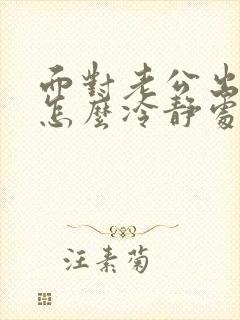 面對老公出
怎麼冷靜處
汪素菊